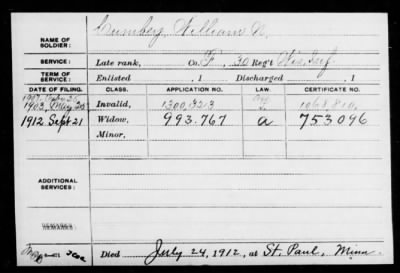 NAME OF SOLDIER: Cumberg, William N.
SERVICE: Late rank, Co. F, 30 Reg't Wis. Inf
TERM OF SERVICE: Enlisted , 1 Discharged , 1
DATE OF FILING. CLASS. APPLICATION NO. LAW. CERTIFICATE NO.
1903, May 28 Invalid, 1300,323 1068,810
1912 Sept 21 Widow, 993.767 a 753096
Minor,
ADDITIONAL SERVICES:
REMARKS:
Died July 24, 1912, at St. Paul, Minn.